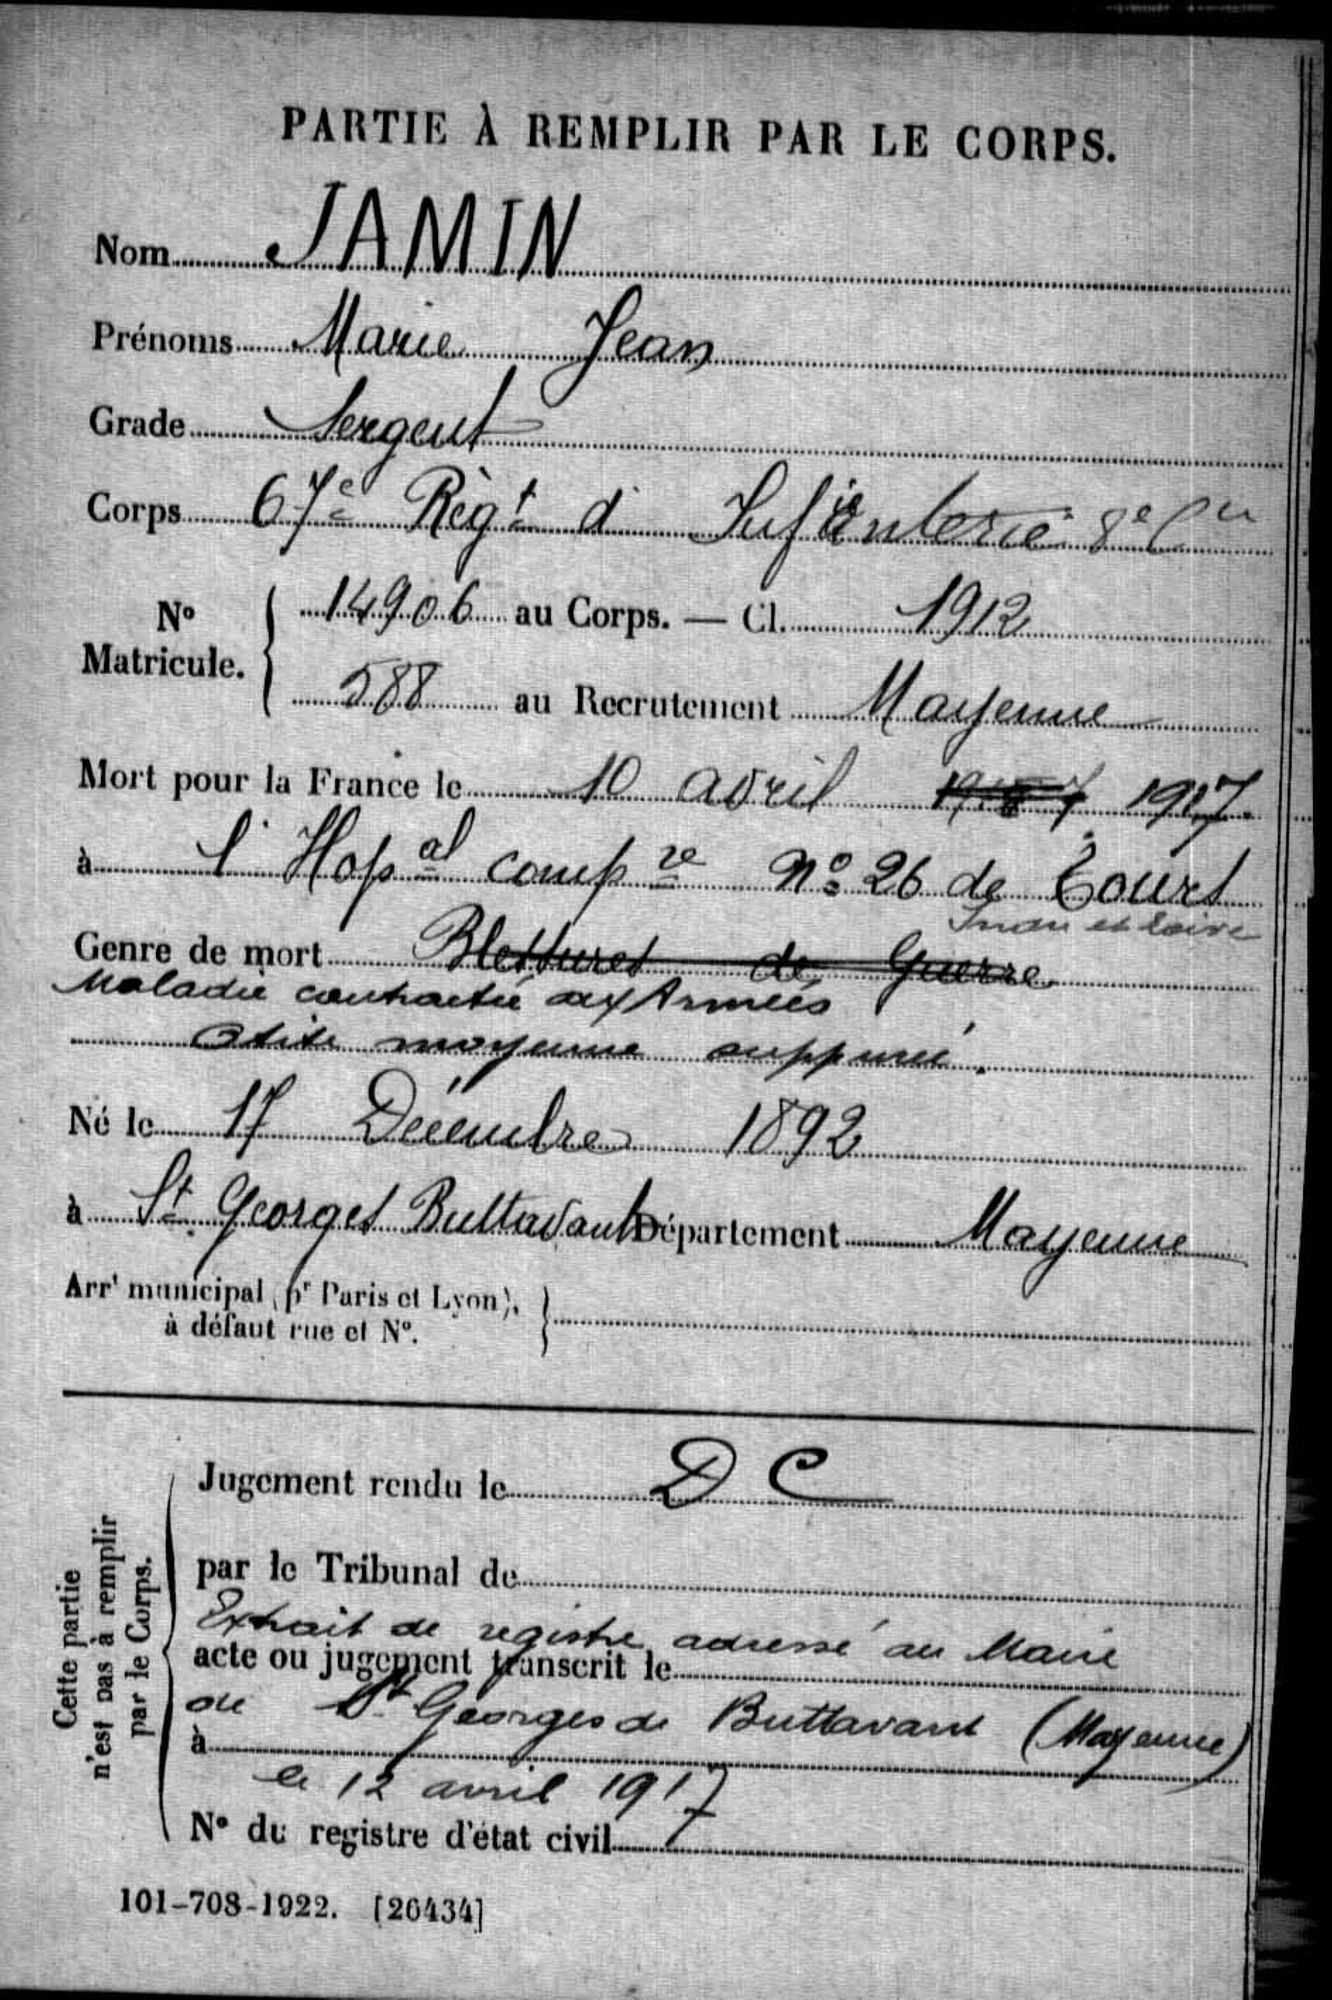 PARTIE À REMPLIR PAR LE CORPS.
Nom JAMIN
Prénoms Marie Jean
Grade Sergent
Corps 67e Règt d' Infanterie 8e Cie
No Matricule. 14906 au Corps. — Cl. 1912
588 au Recrutement Mayenne
Mort pour la France le 10 avril 1917.
à l' Hopal compre No 26 de Tours
Indre et Loire
Genre de mort Blessures de Guerre
Maladie contractée aux Armées
Otite moyenne suppurée.
Né le 17 Décembre 1892
à St. Georges Buttavant Département Mayenne
Arrt municipal (pr Paris et Lyon),
à défaut rue et No.
Jugement rendu le DC
par le Tribunal de
Extrait de registre adressé au Maire
acte ou jugement transcrit le
de St Georges de Buttavant (Mayenne)
à
le 12 avril 1917
No du registre d'état civil
Cette partie
n'est pas à remplir
par le Corps.
101-708-1922. [26434]